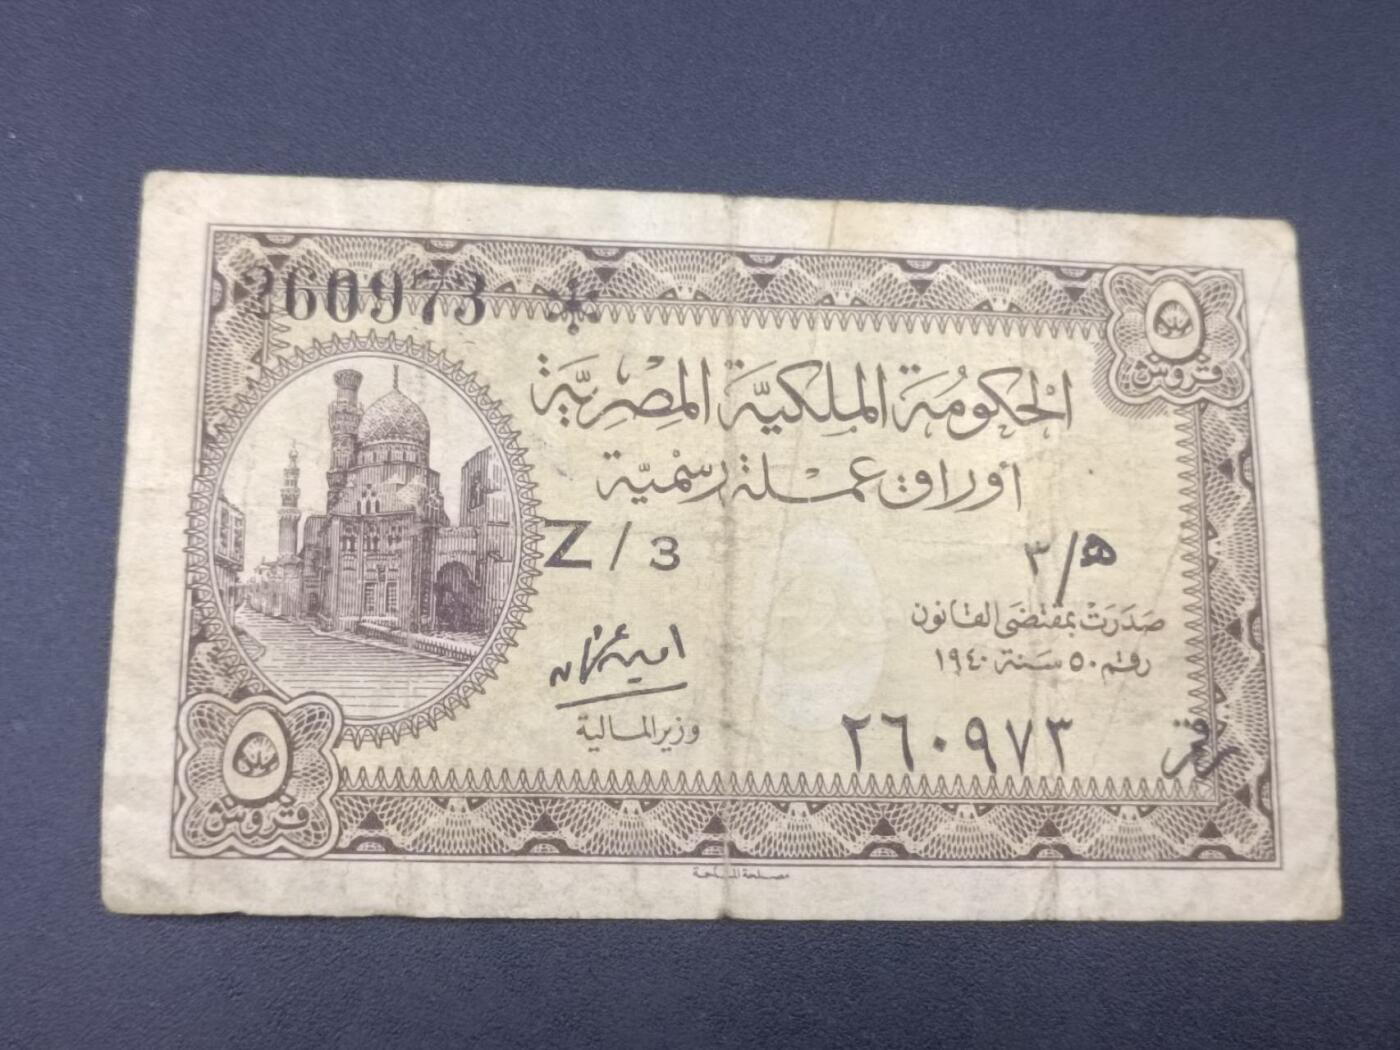 260973
٥
قروش
الحكومة الملكية المصرية
أوراق عملة رسمية
Z / 3
ه/٣
صدرت بمقتضى القانون
رقم ٥٠ سنة ١٩٤٠
وزير المالية
رقم ٢٦٠٩٧٣
٥
قروش
مصلحة المساحة